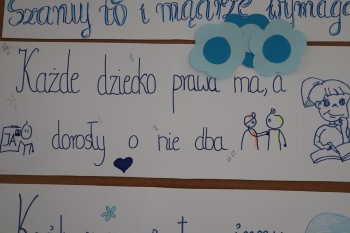 Szanuj to i mądrze wymaga
Każde dziecko prawa ma, a
dorosły o nie dba
JA